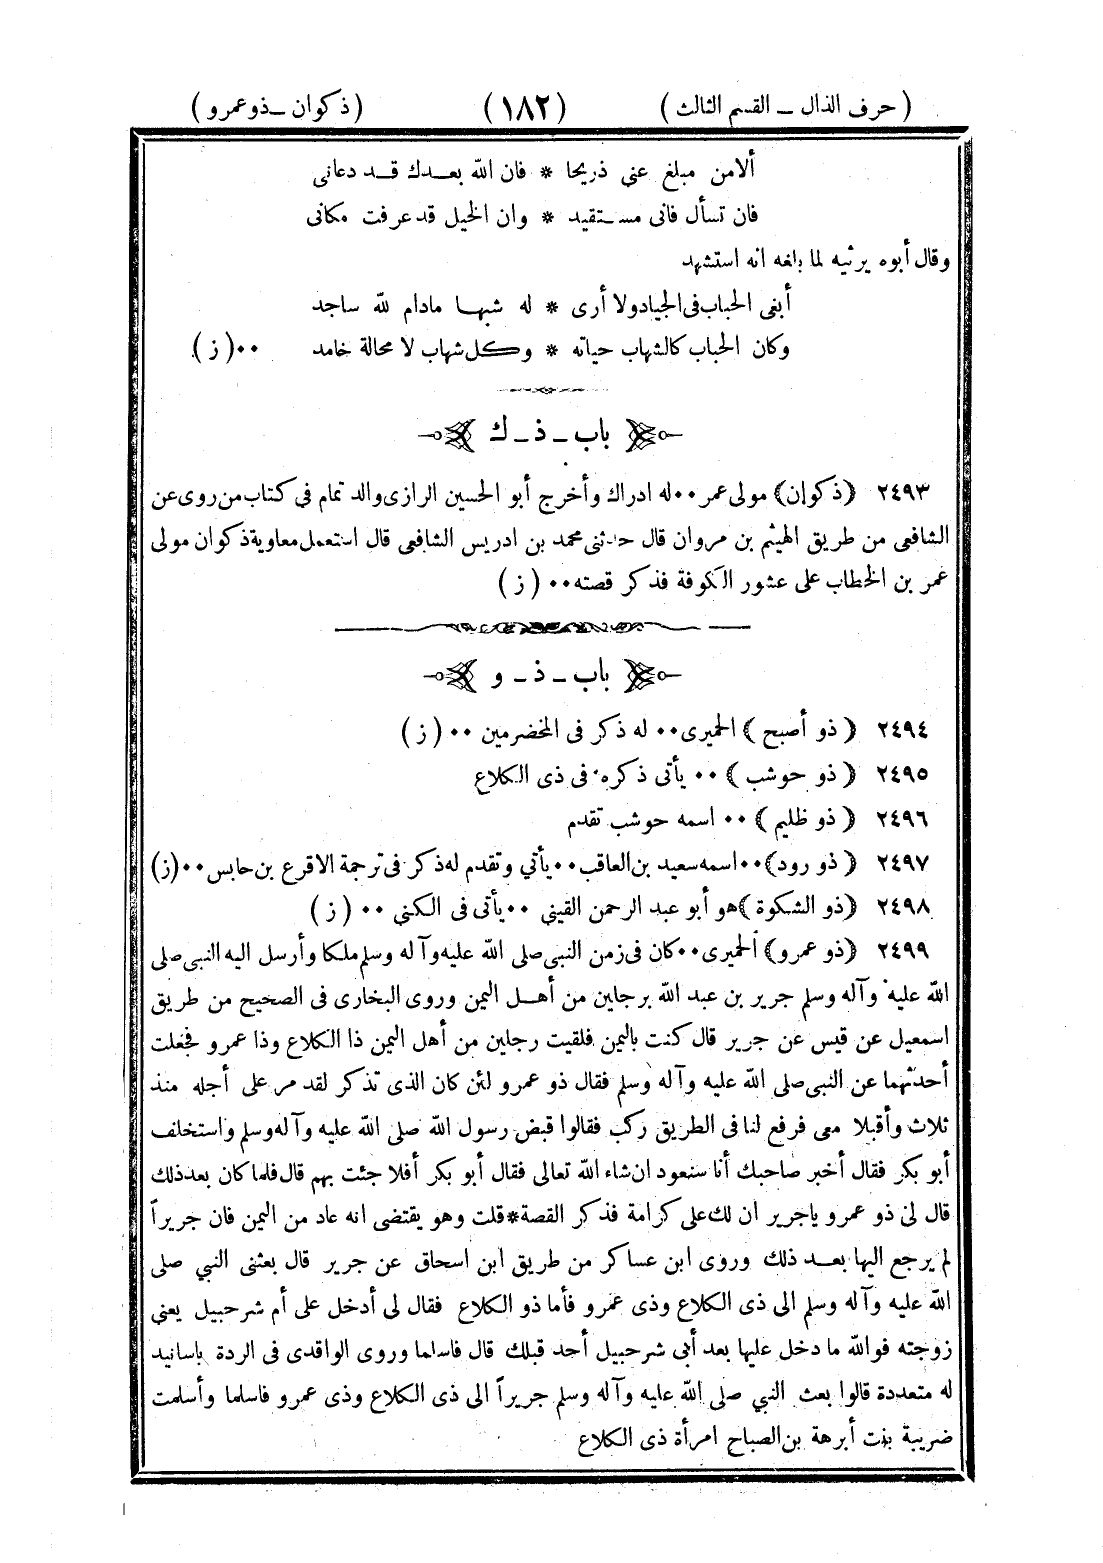 (حرف الذال ــ القسم الثالث) (١٨٢) (ذكوان ــ ذو عمرو)
ألا من مبلغ عنى ذريحا * فان الله بعدك قد دعانى
فان تسأل فانى مستقيد * وان الخيل قد عرفت مكانى
وقال أبوه يرثيه لما بلغه انه استشهد
أبغى الحباب فى الجياد ولا أرى * له شبها مادام لله ساجد
وكان الحباب كالشهاب حياته * وكل شهاب لا محالة خامد ٠٠(ز)
باب ــ ذ ــ ك
٢٤٩٣ (ذكوان) مولى عمر ٠٠ له ادراك وأخرج أبو الحسين الرازى والد تمام فى كتاب من روى عن
الشافعى من طريق الهيثم بن مروان قال حدثنى محمد بن ادريس الشافعى قال استعمل معاوية ذكوان مولى
عمر بن الخطاب على عشور الكوفة فذكر قصته ٠٠ (ز)
باب ــ ذ ــ و
٢٤٩٤ (ذو أصبح) الحميرى ٠٠ له ذكر فى المخضرمين ٠٠ (ز)
٢٤٩٥ (ذو حوشب) ٠٠ يأتى ذكره فى ذى الكلاع
٢٤٩٦ (ذو ظليم) ٠٠ اسمه حوشب تقدم
٢٤٩٧ (ذو رود) ٠٠ اسمه سعيد بن العاقب ٠٠ يأتي وتقدم له ذكر فى ترجمة الاقرع بن حابس ٠٠ (ز)
٢٤٩٨ (ذو الشكوة) هو أبو عبد الرحمن القيني ٠٠ يأتى فى الكنى ٠٠ (ز)
٢٤٩٩ (ذو عمرو) الحميرى ٠٠ كان فى زمن النبى صلى الله عليه وآله وسلم ملكا وأرسل اليه النبى صلى
الله عليه وآله وسلم جرير بن عبد الله برجلين من أهل اليمن وروى البخارى فى الصحيح من طريق
اسمعيل عن قيس عن جرير قال كنت باليمن فلقيت رجلين من أهل اليمن ذا الكلاع وذا عمرو فجعلت
أحدثهما عن النبى صلى الله عليه وآله وسلم فقال ذو عمرو لئن كان الذى تذكر لقد مر على أجله منذ
ثلاث وأقبلا معى فرفع لنا فى الطريق ركب فقالوا قبض رسول الله صلى الله عليه وآله وسلم واستخلف
أبو بكر فقال أخبر صاحبك أنا سنعود ان شاء الله تعالى فقال أبو بكر أفلا جئت بهم قال فلما كان بعد ذلك
قال لى ذو عمرو ياجرير ان لك على كرامة فذكر القصة * قلت وهو يقتضى انه عاد من اليمن فان جريراً
لم يرجع اليها بعد ذلك وروى ابن عساكر من طريق ابن اسحاق عن جرير قال بعثنى النبي صلى
الله عليه وآله وسلم الى ذى الكلاع وذى عمرو فأما ذو الكلاع فقال لى أدخل على أم شرحبيل يعني
زوجته فوالله ما دخل عليها بعد أبى شرحبيل أحد قبلك قال فاسلما وروى الواقدى فى الردة باسانيد
له متعددة قالوا بعث النبي صلى الله عليه وآله وسلم جريراً الى ذى الكلاع وذى عمرو فاسلما وأسلمت
ضريبة بنت أبرهة بن الصباح امرأة ذى الكلاع